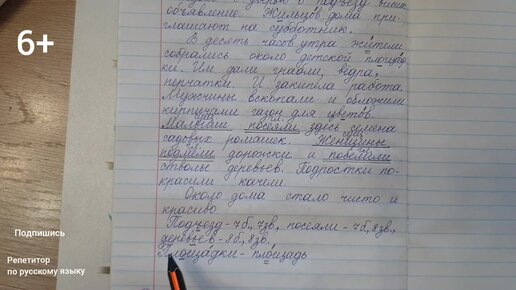 с дверью в подъезд висит
объявление. Жильцов дома при-
глашают на субботник.
В десять часов утра жители
собрались около детской площад-
ки. Им дали грабли, вёдра,
перчатки. И закипела работа.
Мужчины вскопали и обложили
кирпичами газон для цветов.
Малыши посеяли здесь семена
садовых ромашек. Женщины
подмели дорожки и побелили
стволы деревьев. Подростки по-
красили качели.
Около дома стало чисто и
красиво.
Подъезд - 7б., 7зв., посеяли - 7б., 8зв.,
деревьев - 8б., 8зв.
Площадки - площадь
6+
Подпишись
Репетитор
по русскому языку